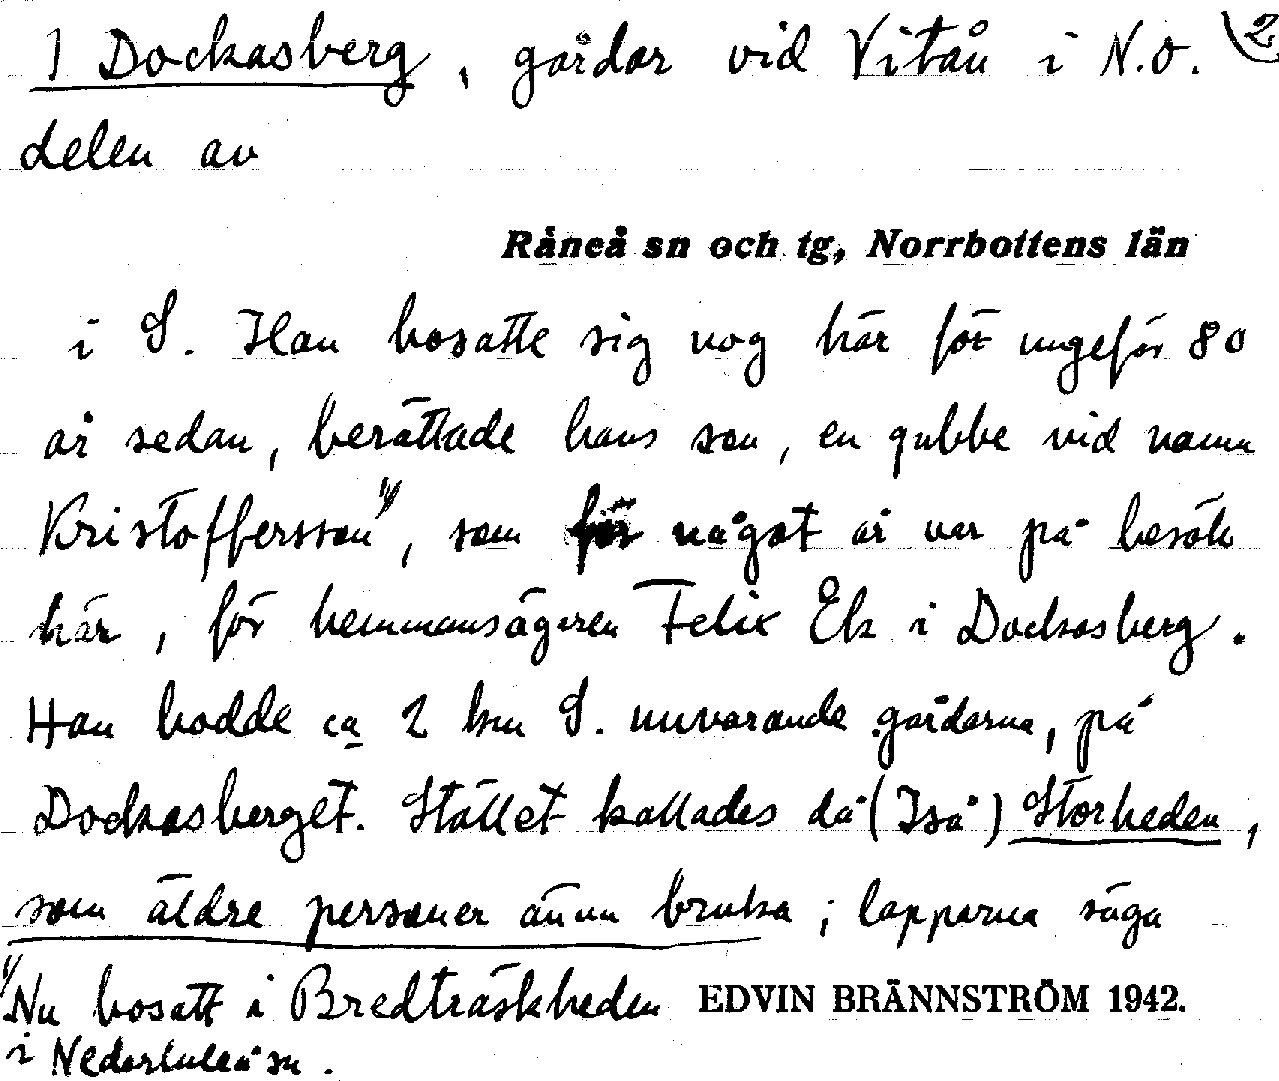 1 Dockasberg, gårdar vid Vitån i N.O. (2
delen av
Råneå sn och tg, Norrbottens län
i S. Han bosatte sig nog här för ungefär 80
år sedan, berättade hans son, en gubbe vid namn
Kristoffersson 1), som för något år var på besök
här, för hemmansägaren Felix Ek i Dockasberg.
Han bodde ca 2 km S. nuvarande gårdarna, på
Dockasberget. Stället kallades då (Iså) Storheden,
som äldre personer ännu bruka; lapparna säga
1) Nu bosatt i Bredträskheden EDVIN BRÄNNSTRÖM 1942.
i Nederluleå sn.